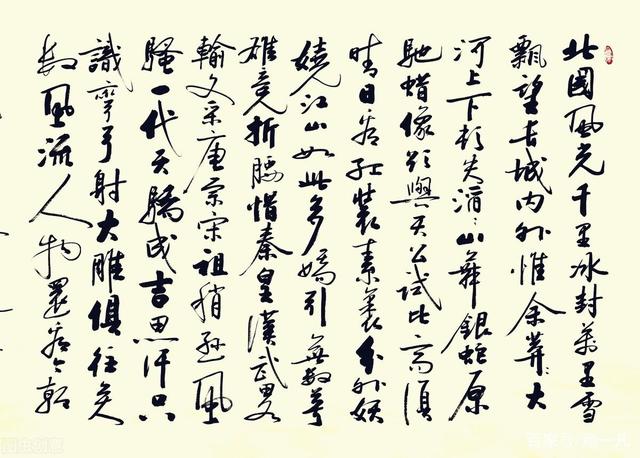 北國風光千里冰封萬里雪
飄望長城内外惟余莽々大
河上下頓失滔々山舞銀蛇原
馳蜡像欲與天公試比高須
晴日看紅裝素裹分外妖
嬈江山如此多嬌引無數英
雄竟折腰惜秦皇漢武略
輸文采唐宗宋祖稍遜風
騷一代天驕成吉思汗只
識彎弓射大雕俱往矣
數風流人物還看今朝
图虫创意
百家号/